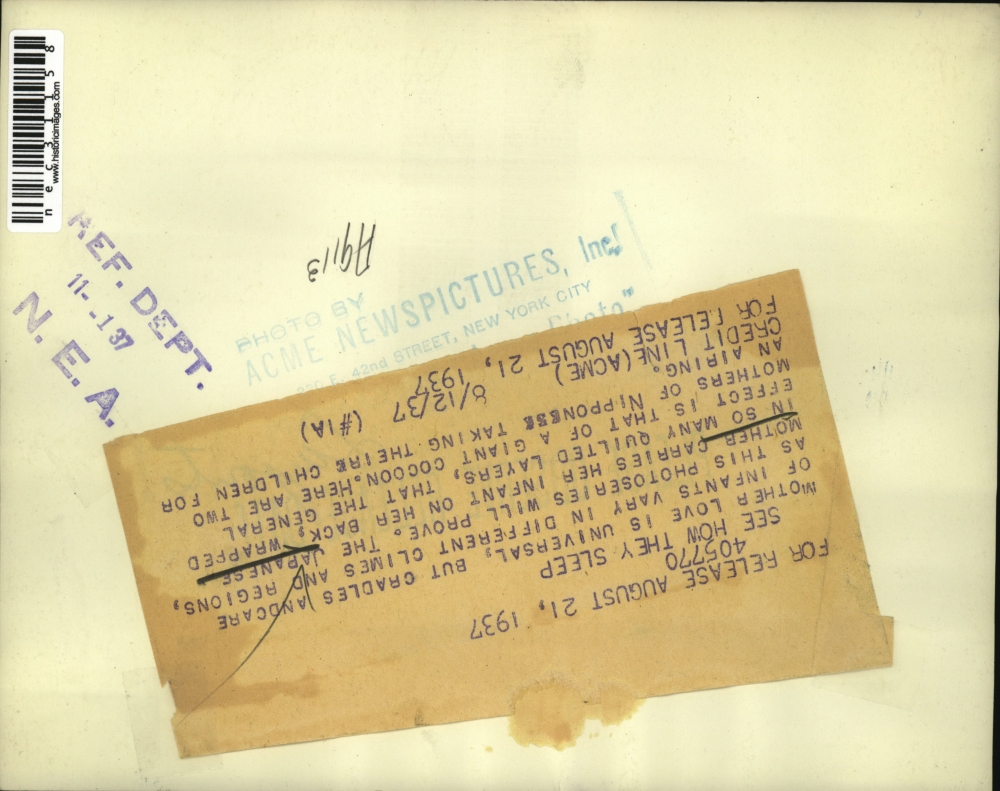 nec31158
www.historicimages.com
REF. DEPT.
11-137
N. E. A.
A9113
PHOTO BY
ACME NEWSPICTURES, Inc.
42nd STREET, NEW YORK CITY
Photo"
FOR RELEASE AUGUST 21, 1937
405770
SEE HOW THEY SLEEP
MOTHER LOVE IS UNIVERSAL, BUT CRADLES ANDCARE
OF INFANTS VARY IN DIFFERENT CLIMES AND REGIONS,
AS THIS PHOTOSERIES WILL PROVE. THE JAPANESE
MOTHER CARRIES HER INFANT ON HER BACK, WRAPPED
IN SO MANY QUILTED LAYERS, THAT THE GENERAL
EFFECT IS THAT OF A GIANT COCOON.HERE ARE TWO
MOTHERS OF NIPPONESE TAKING THEIRE CHILDREN FOR
AN AIRING.
CREDIT LINE (ACME) 8/12/37 (#1A)
FOR RELEASE AUGUST 21, 1937